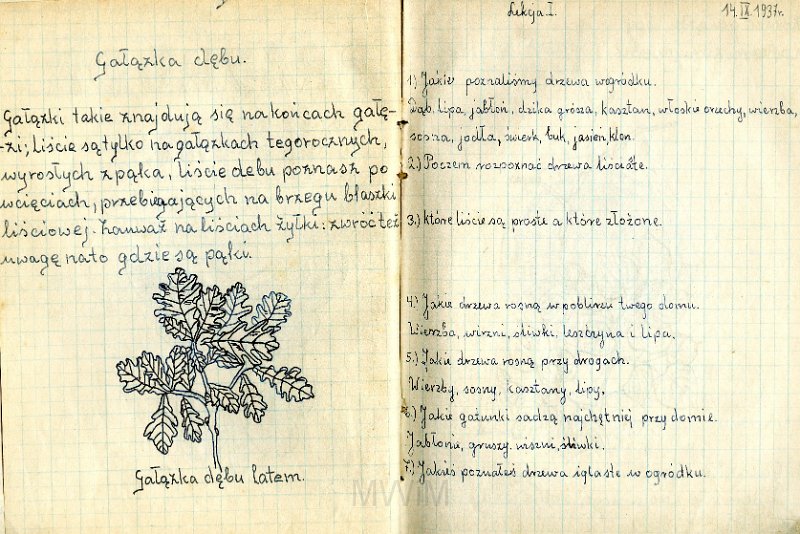 Gałązka dębu.
Gałązki takie znajdują się na końcach gałę-
-zi; liście są tylko na gałązkach tegorocznych,
wyrosłych z pąka, liście debu poznasz po
wcięciach, przebiegających na brzegu blaszki
liściowej. Zauważ na liściach żyłki: zwróć też
uwagę na to gdzie są pąki.
Gałązka dębu latem.
Lekcja I.
14.IX.1937r.
1) Jakie poznaliśmy drzewa w ogródku.
Dąb, lipa, jabłoń, dzika grusza, kasztan, włoskie orzechy, wierzba,
sosna, jodła, świerk, buk, jasień, klon.
2.) Poczem rozpoznać drzewa liściaste.
3.) które liście są proste a które złożone.
4.) Jakie drzewa rosną w poblirzu twego domu.
Wierzba, wiśni, śliwki, leszczyna i lipa.
5.) Jakie drzewa rosną przy drogach.
Wierzby, sosny, kasztany, lipy.
6.) Jakie gatunki sadzą najchętniej przy domie.
Jabłonie, gruszy, wiszni, śliwki.
7.) Jakieś poznałeś drzewa iglaste w ogródku.
MWiM